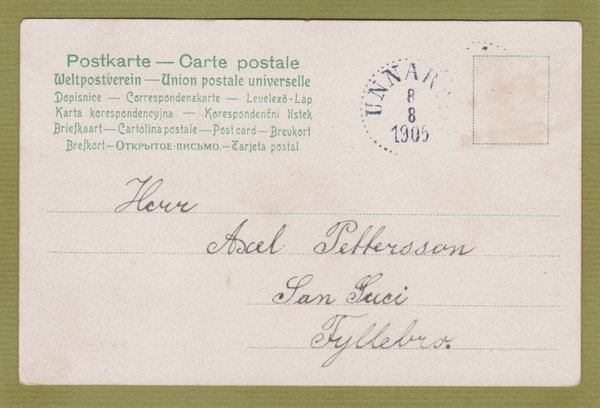 Postkarte — Carte postale
Weltpostverein — Union postale universelle
Dopisnice — Correspondenzkarte — Levelező-Lap
Karta korespondencyjna — Korespondenční lístek
Briefkaart — Cartolina postale — Post card — Brevkort
Brefkort — Открытое письмо. — Tarjeta postal
8
8
1905
Herr
Axel Pettersson
San Suci
Fyllebro.